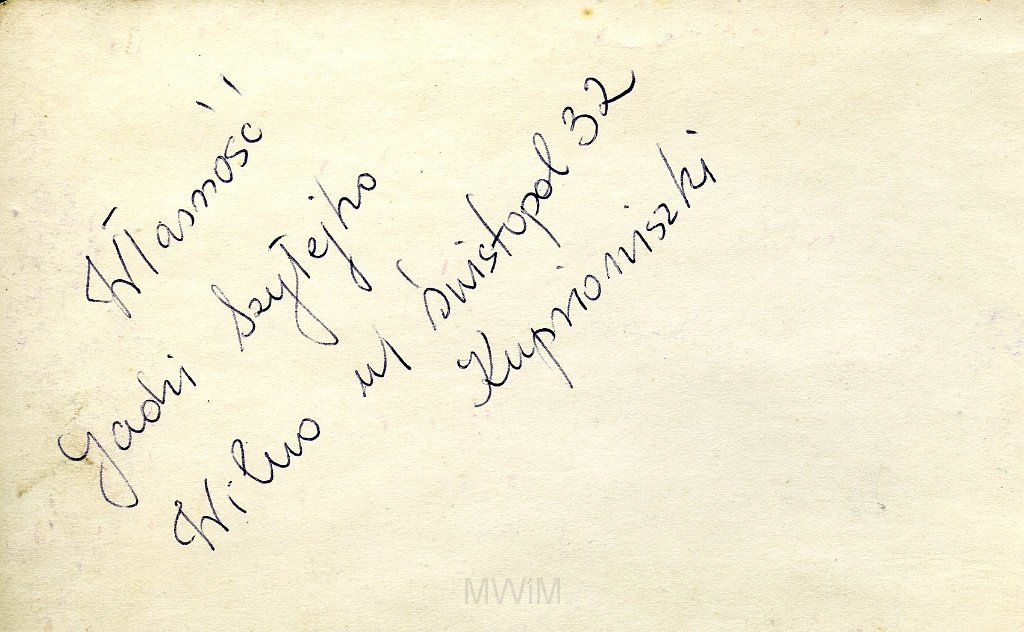 Własność
Jadzi Szyłejko
Wilno ul Świstopol 32
Kuprioniszki
MWiM